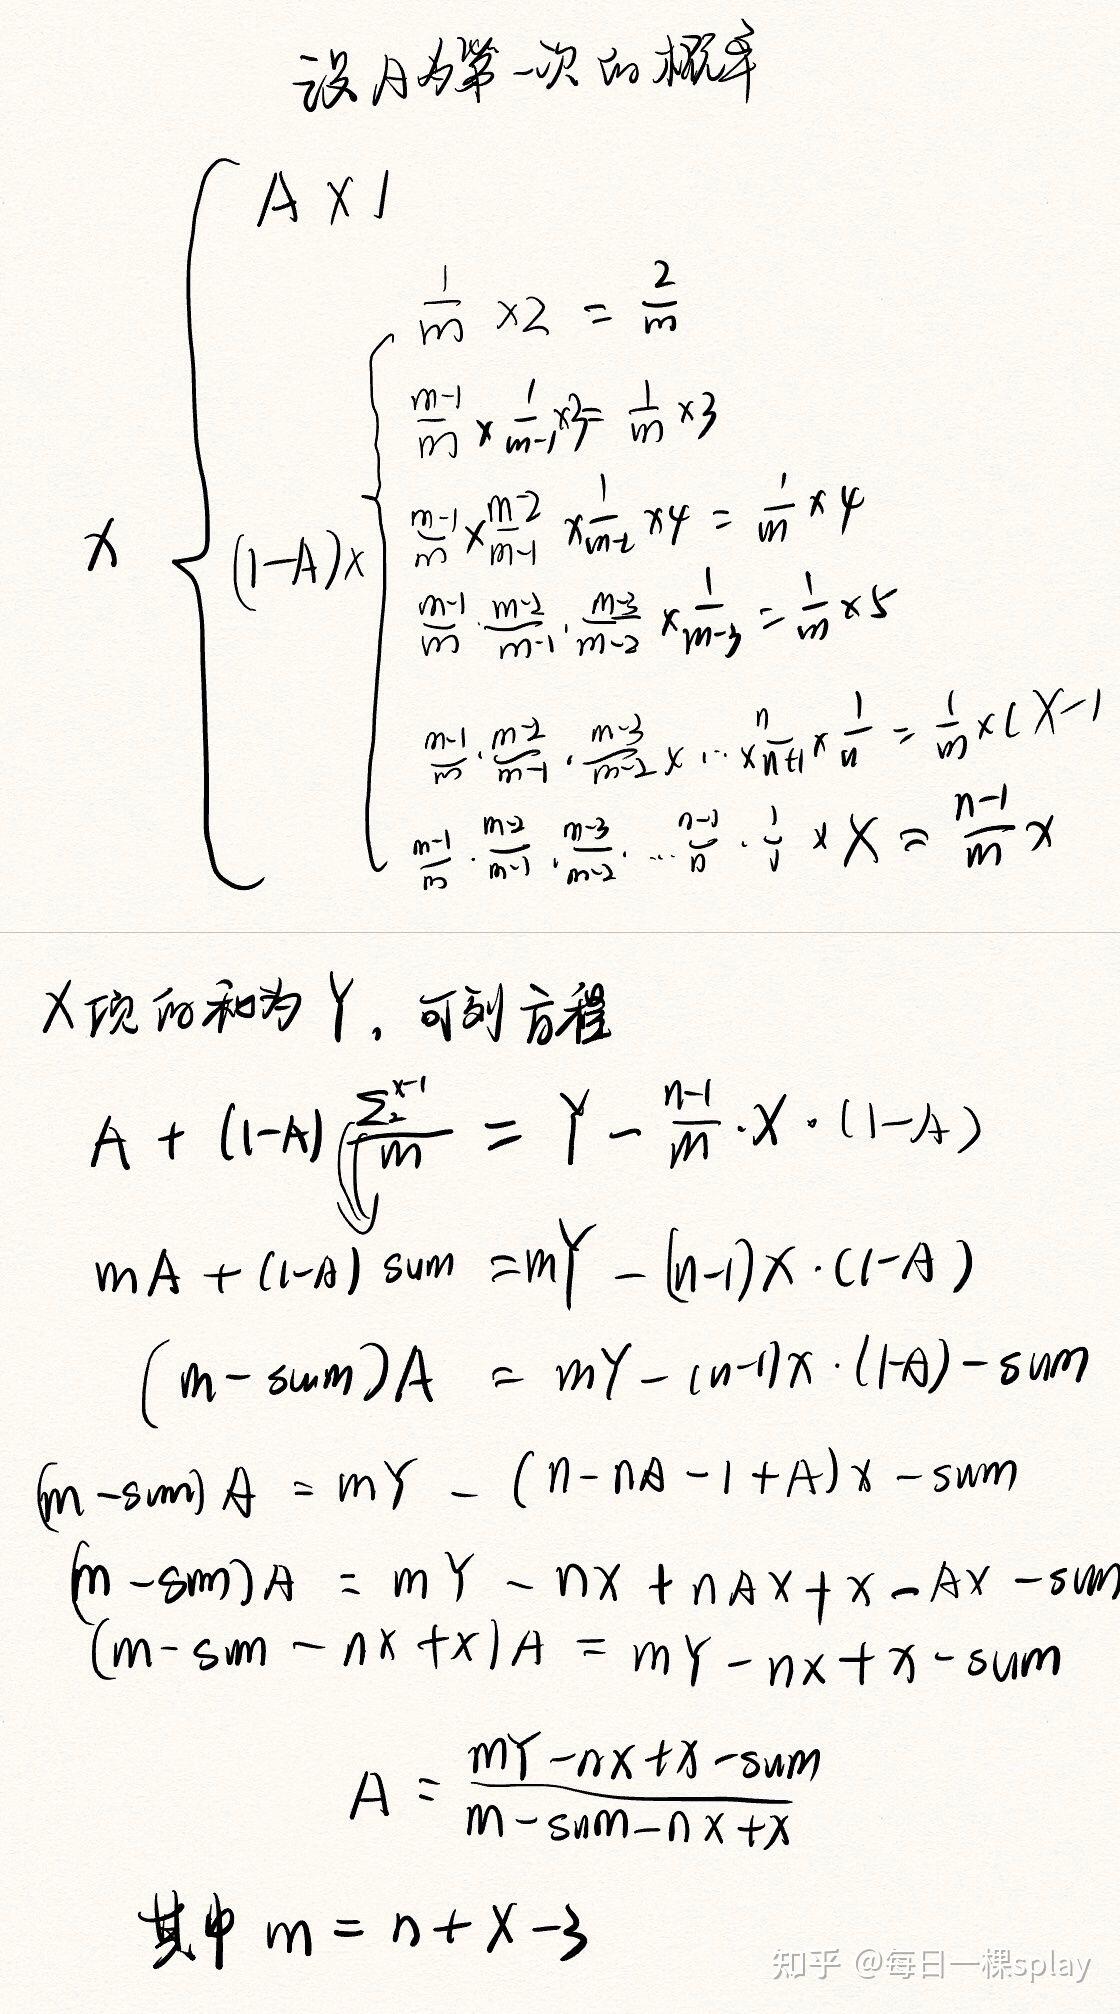 设A为第一次的概率
A × 1
1/m × 2 = 2/m
(m-1)/m × 1/(m-1) × 3 = 1/m × 3
(m-1)/m × (m-2)/(m-1) × 1/(m-2) × 4 = 1/m × 4
X { (1-A) × {
(m-1)/m · (m-2)/(m-1) · (m-3)/(m-2) × 1/(m-3) = 1/m × 5
(m-1)/m · (m-2)/(m-1) · (m-3)/(m-2) × ... × n/(n+1) × 1/n = 1/m × (X-1
(m-1)/m · (m-2)/(m-1) · (m-3)/(m-2) · ... (n-1)/n · 1/1 × X = (n-1)/m x
X项的和为Y, 可列方程
A + (1-A) (∑_2^{x-1})/m = Y - (n-1)/m · X · (1-A)
mA + (1-A) sum = mY - (n-1)X · (1-A)
(m - sum)A = mY - (n-1)x · (1-A) - sum
(m - sum)A = mY - (n - nA - 1 + A)x - sum
(m - sum)A = mY - nX + nAX + x - AX - sum
(m - sum - nx + x)A = mY - nx + x - sum
A = (mY - nx + x - sum)/(m - sum - nx + x)
其中 m = n + X - 3
知乎 @每日一棵splay